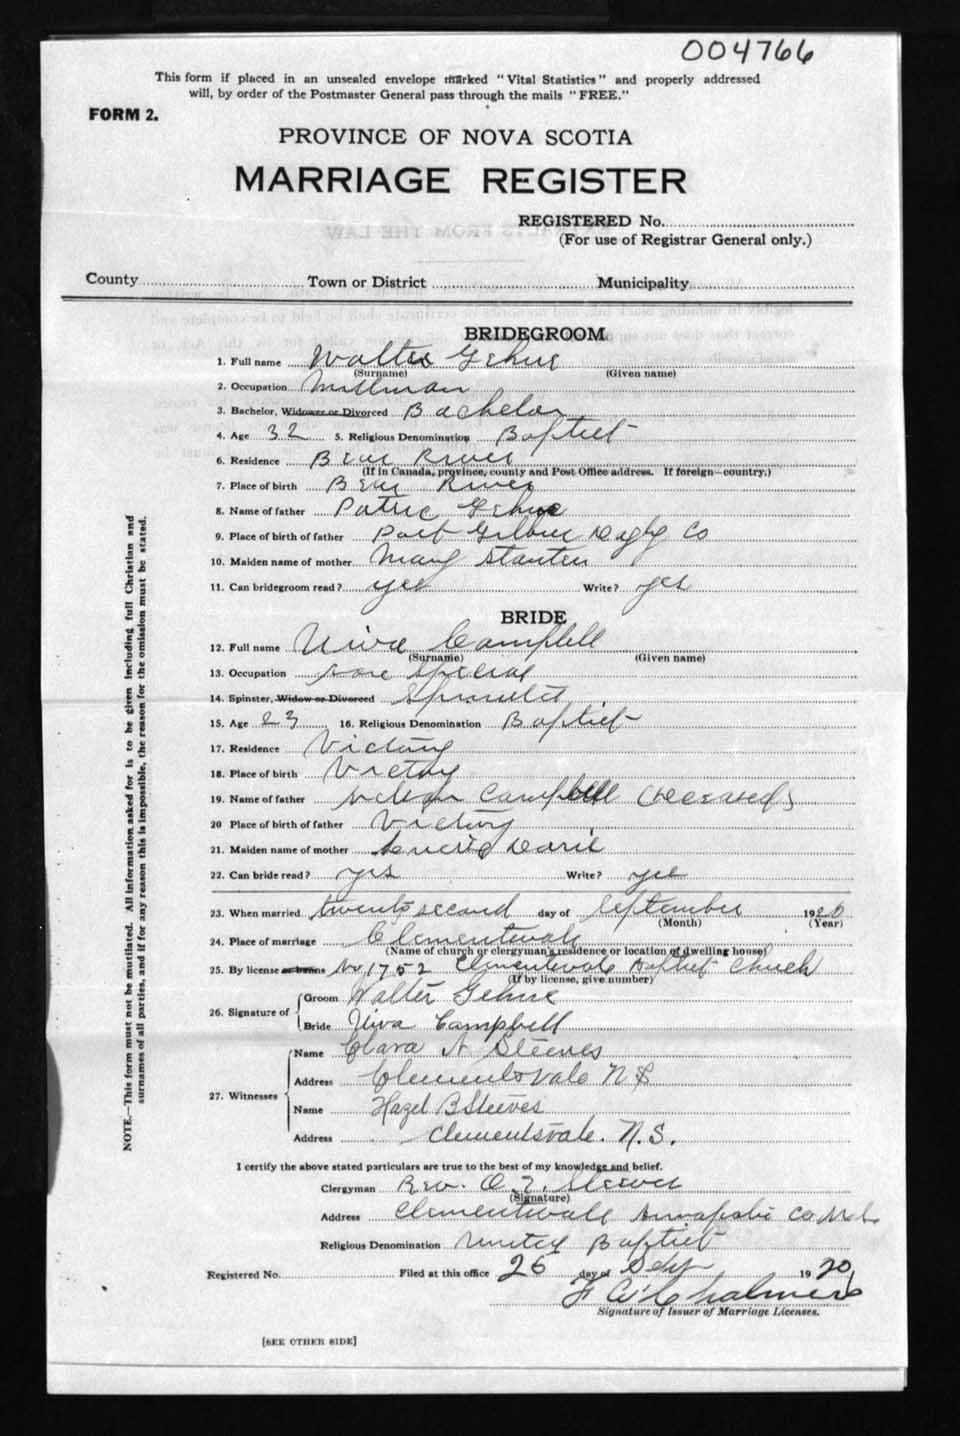 004766
This form if placed in an unsealed envelope marked "Vital Statistics" and properly addressed
will, by order of the Postmaster General pass through the mails "FREE."
FORM 2.
PROVINCE OF NOVA SCOTIA
MARRIAGE REGISTER
REGISTERED No.
(For use of Registrar General only.)
County Town or District Municipality
BRIDEGROOM
1. Full name Walter Gehue
(Surname) (Given name)
2. Occupation Millman
3. Bachelor, Widower or Divorced Bachelor
4. Age 32 5. Religious Denomination Baptist
6. Residence Bear River
(If in Canada, province, county and Post Office address. If foreign—country.)
7. Place of birth Bear River
8. Name of father Patric Gehue
9. Place of birth of father Port Gilbert Digby Co
10. Maiden name of mother Mary Stanten
11. Can bridegroom read? yes Write? yes
BRIDE
12. Full name Niva Campbell
(Surname) (Given name)
13. Occupation None Special
14. Spinster, Widow or Divorced Spinster
15. Age 23 16. Religious Denomination Baptist
17. Residence Victory
18. Place of birth Victory
19. Name of father Campbell (Deceased)
20 Place of birth of father Victory
21. Maiden name of mother
22. Can bride read? yes Write? yes
23. When married twenty second day of September 1920
(Month) (Year)
24. Place of marriage Clementsvale
(Name of church or clergyman's residence or location of dwelling house)
25. By license or banns No. 1752 Clementsvale Baptist Church
(If by license, give number)
26. Signature of
Groom Walter Gehue
Bride Niva Campbell
27. Witnesses
Name Clara N Steeves
Address Clementsvale NS
Name Hazel B Steeves
Address Clementsvale. N.S.
I certify the above stated particulars are true to the best of my knowledge and belief.
Clergyman Rev. O. Steeves
(Signature)
Address Clementsvale Annapolis Co N.S.
Religious Denomination United Baptist
Registered No. Filed at this office 26 day of Sept 1920
Chalmers
Signature of Issuer of Marriage Licenses.
[SEE OTHER SIDE]
NOTE.—This form must not be mutilated. All information asked for is to be given including full Christian and
surnames of all parties, and if for any reason this is impossible, the reason for the omission must be stated.